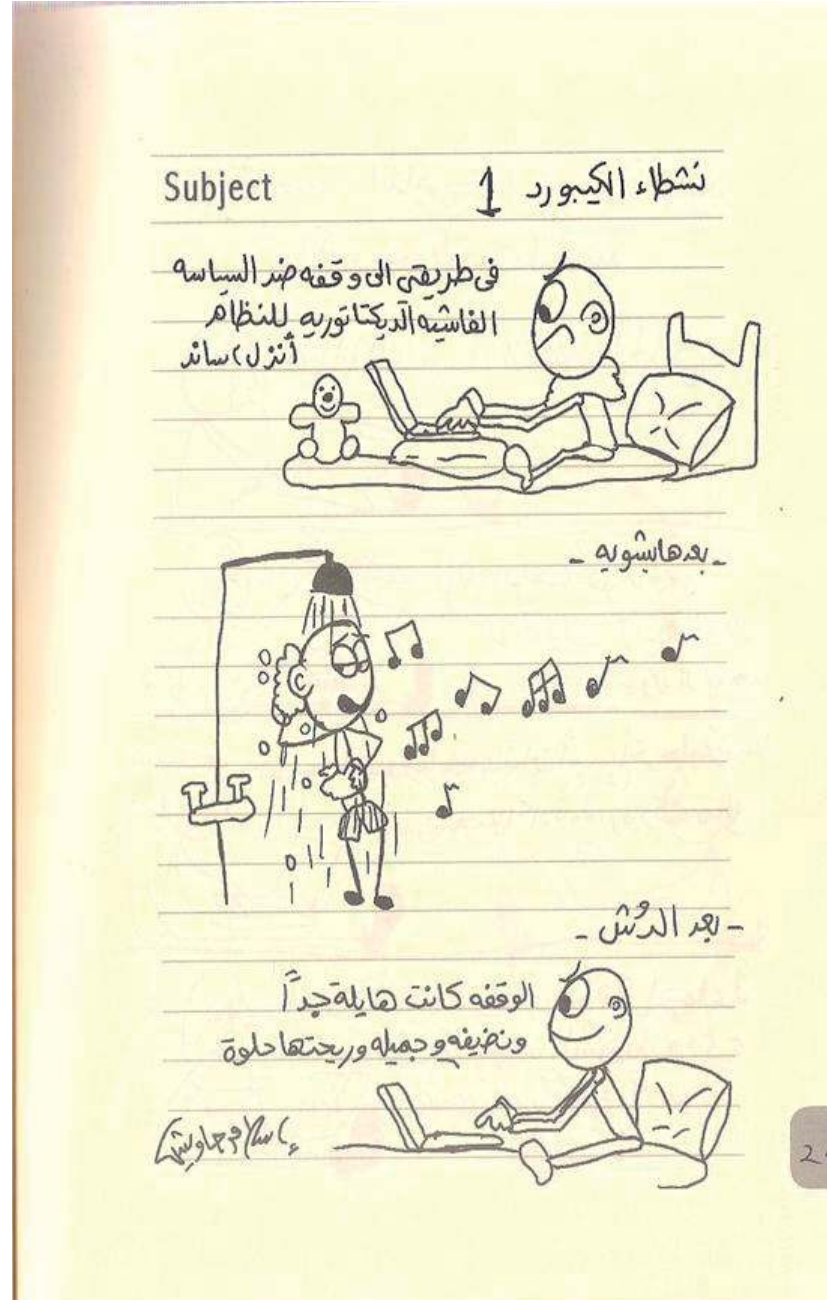 Subject
نشطاء الكيبورد 1
فى طريقى الى وقفه ضد السياسه
الفاشيه الديكتاتوريه للنظام
أنزل ساند
- بعدها بشويه -
- بعد الدُش -
الوقفه كانت هايلة جداً
ونضيفه وجميله وريحتها حلوة
إسلام جاويش